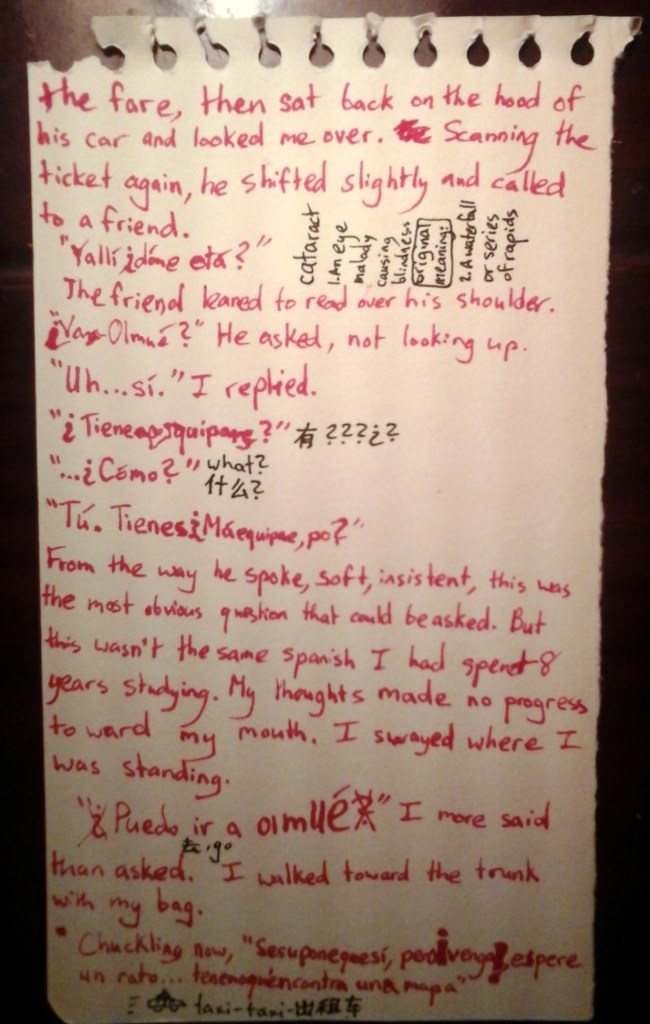 the fare, then sat back on the hood of
his car and looked me over. Scanning the
ticket again, he shifted slightly and called
to a friend.
"Yallí ¿dóme etá?"
cataract
1. An eye
malady
causing
blindness
original
meaning:
2. A waterfall
or series
of rapids
The friend leaned to read over his shoulder.
"¿Vax-Olmué?" He asked, not looking up.
"Uh...sí." I replied.
"¿Tiene ?" 有???¿?
"...¿Cómo?" what?
什么?
"Tú. Tienes¿Máequipae, po?"
From the way he spoke, soft, insistent, this was
the most obvious question that could be asked. But
this wasn't the same spanish I had spent 8
years studying. My thoughts made no progress
toward my mouth. I swayed where I
was standing.
"¿Puedo ir a olmué" I more said
去.go
than asked. I walked toward the trunk
with my bag.
"Chuckling now, "Sesuponequesí, espere
un rato... tenemoquencontra una mapa"
taxi-taxi-出租车